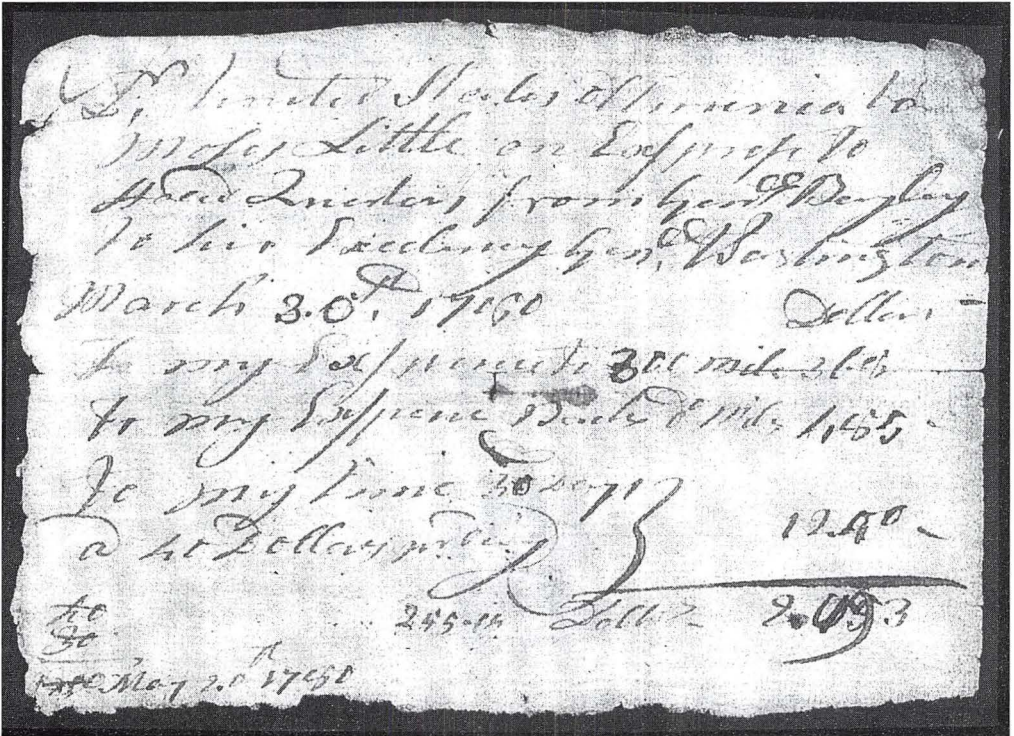 Dr. United States of America to
Moses Little on Express to
from Genl Bayley
to his Excelency Genl. Washington
March 30th. 1780 Dollars
to my Expence to 300 mile
to my Expence Back Do mile 485
To my time 30 Days
a 40 Dollars pr Day 1200
40
30
255-15 Dolls
1200 May 20th 1780